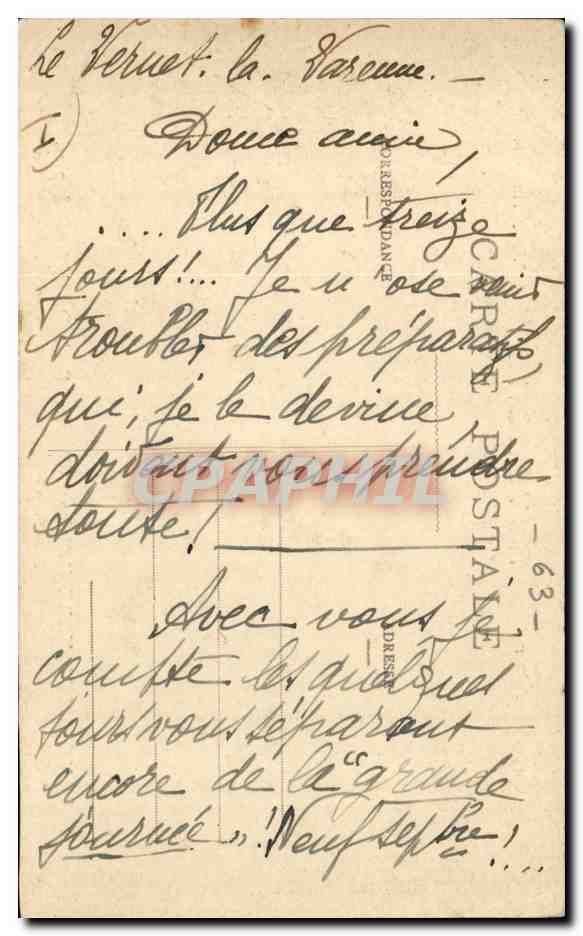 Le Vernet. la. Varenne. —
I)
Douce amie,
..... Plus que treize
jours!... Je n'ose vous
troubler des préparatifs
qui, je le devine,
doivent vous prendre
toute!
Avec vous je
compte les quelques
jours vous séparant
encore de la "grande
journée"! Neuf sepbre!....
CORRESPONDANCE
CARTE POSTALE
ADRESSE
- 63 -
CPAPHIL